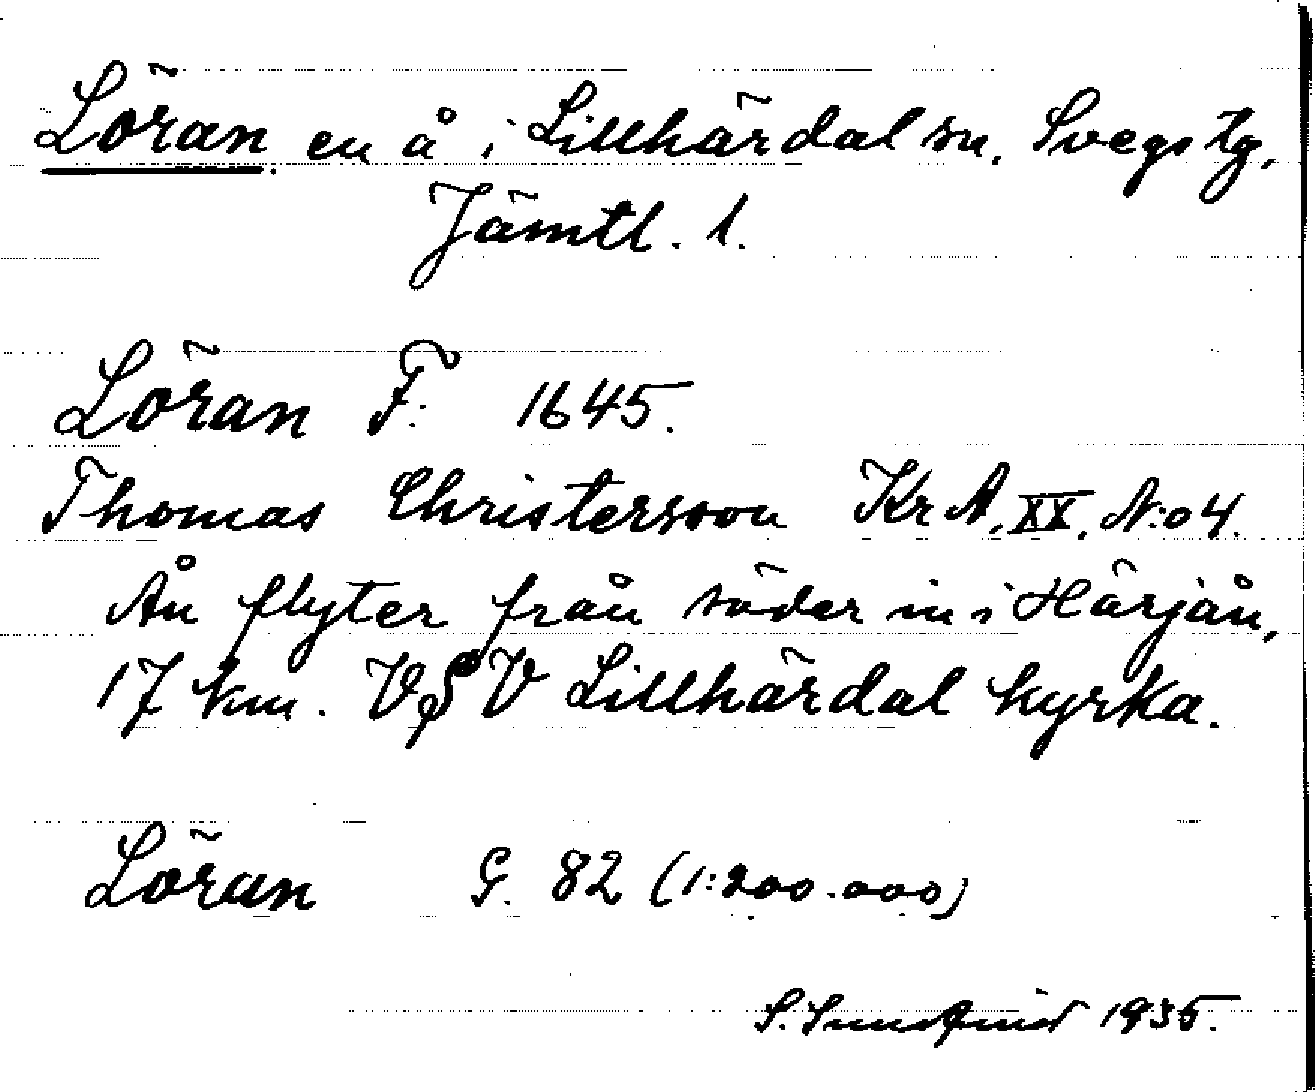 Löran en å i Lillhärdal sn. Svegs tg.
Jämtl. l.
Löran F. 1645.
Thomas Christersson Kr A. XX. N:o 4.
Ån flyter från söder in i Härjån,
17 km. VSV Lillhärdal kyrka.
Löran G. 82 (1:200.000)
S. 1935.